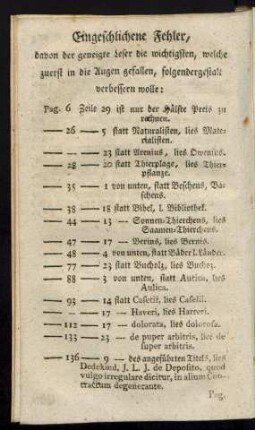 Eingeschlichene Fehler,
davon der geneigte Leser die wichtigsten, welche
zuerst in die Augen gefallen, folgendergestalt
verbessern wolle:
Pag. 6 Zeile 29 ist nur der Hälfte Preis zu
rechnen.
— 26 — 5 statt Naturalisten, lies Mate-
rialisten.
— — 23 statt Arenius, lies Owenius.
— 28 — 20 statt Thierplage, lies Thier-
pflanze.
— 35 — 1 von unten, statt Beschens, Ba-
schens.
— 38 — 18 statt Bibel, l. Bibliothek.
— 44 — 13 — Sonnen-Thierchens, lies
Saamen-Thierchens.
— 47 — 17 — Berins, lies Bernis.
— 48 — 4 von unten, statt Bäder l. Länder.
— 77 — 23 statt Bucholz, lies Buchoz.
— 88 — 3 von unten, statt Autica, lies
Aulica.
— 93 — 14 statt Caserii, lies Caselii.
— — 17 — Haveri, lies Harreri.
— 112 — 17 — dolorata, lies dolorosa.
— 133 — 23 — de puper arbitris, lies de
super arbitris.
— 136 — 9 — des angeführten Titels, lies
Dedekind, J. L. J. de Deposito, quod
vulgo irregulare dicitur, in alium Con-
tractum degenerante.
Pag.